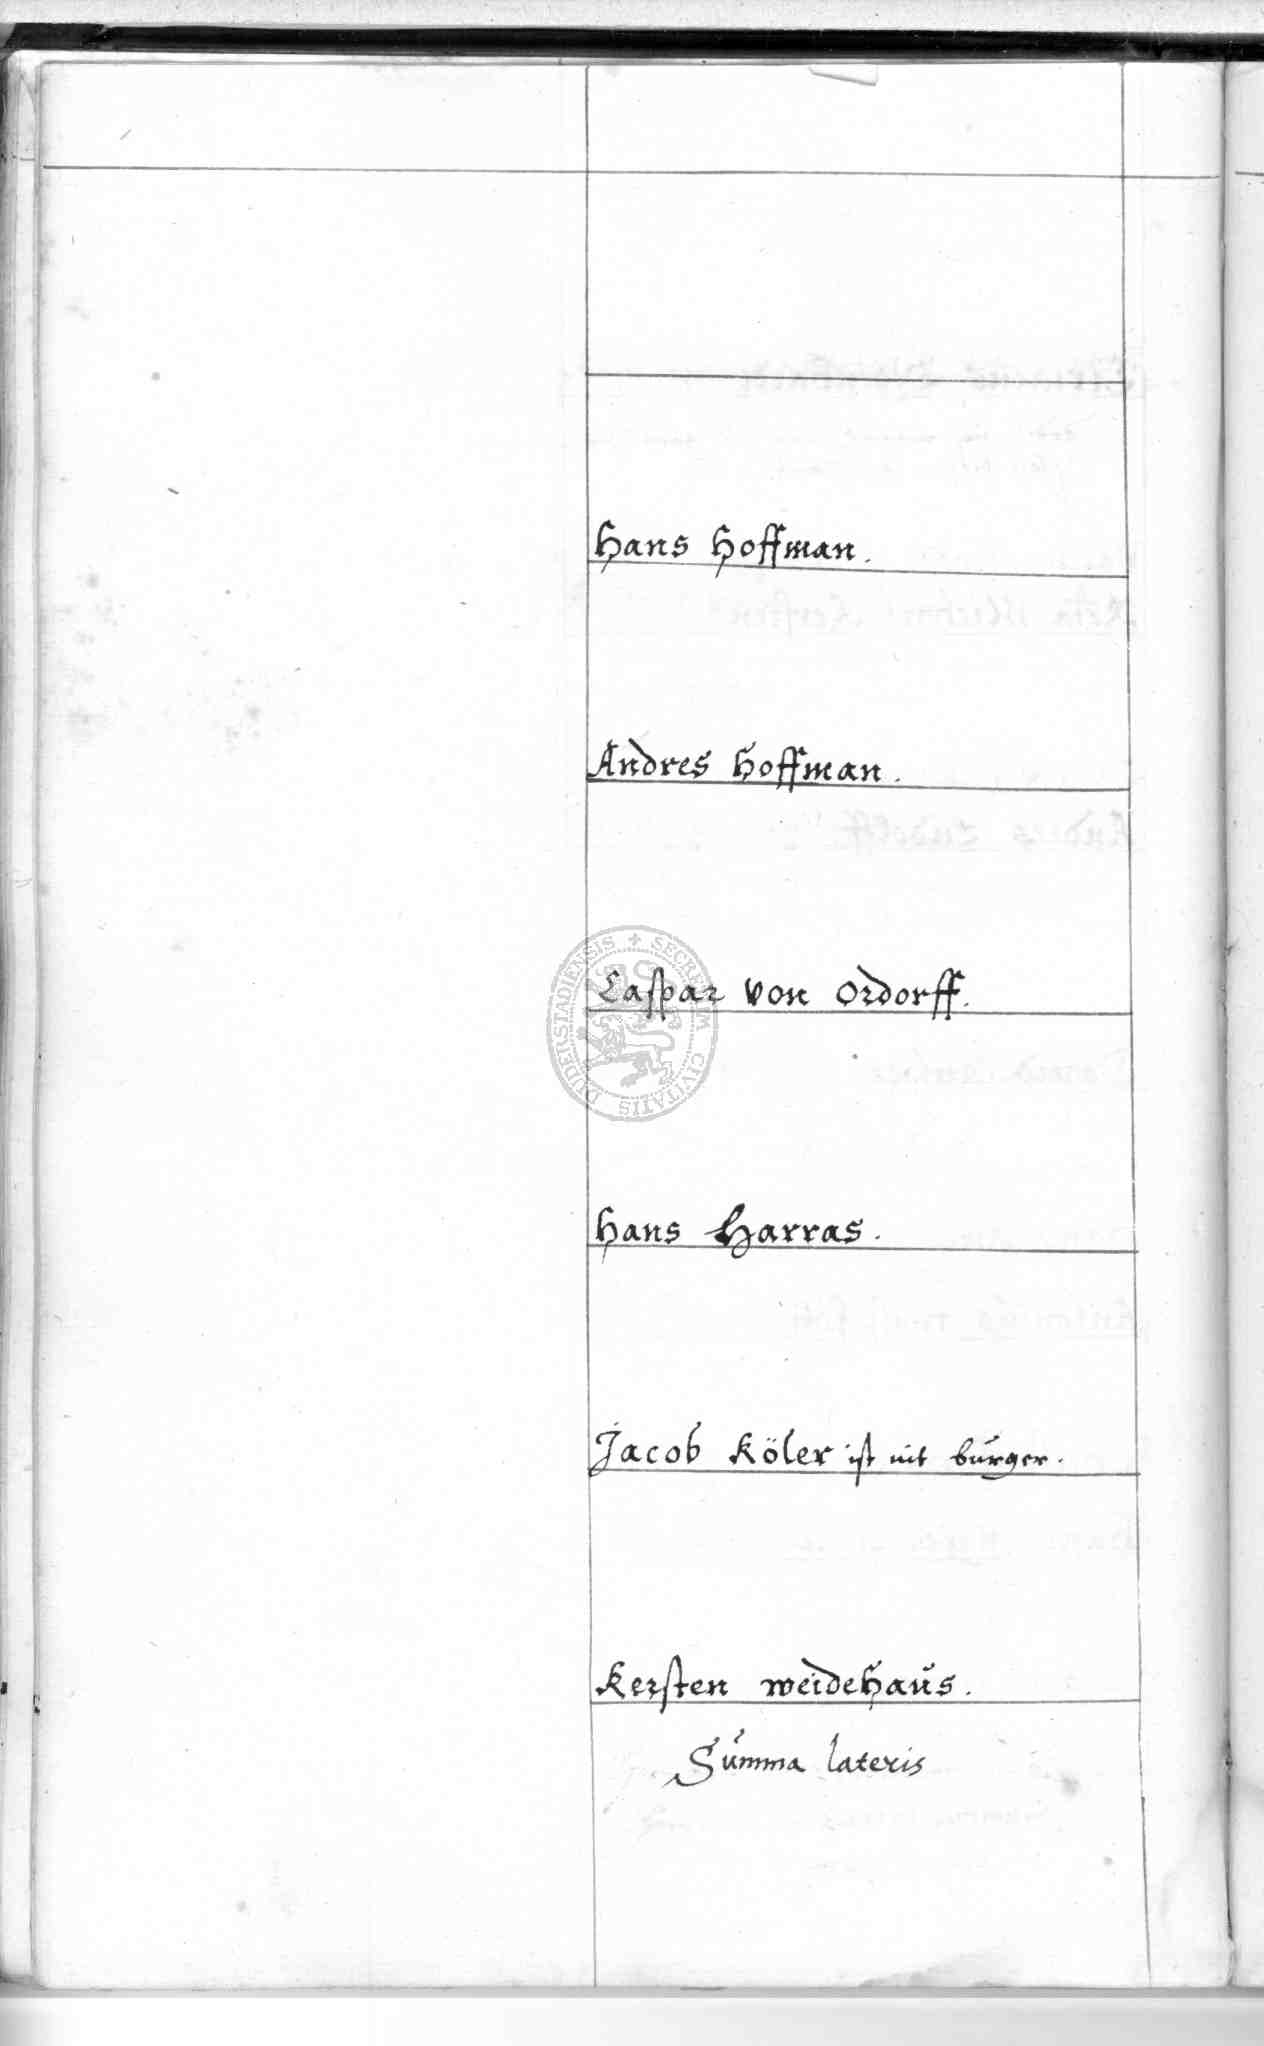 Hans Hoffman.
Andres Hoffman.
Caspar von Ordorff.
Hans Harras.
Jacob Köler ist nit burger.
Kersten weidehaus.
Summa lateris
SECRETUM CIVITATIS DUDERSTADIENSIS